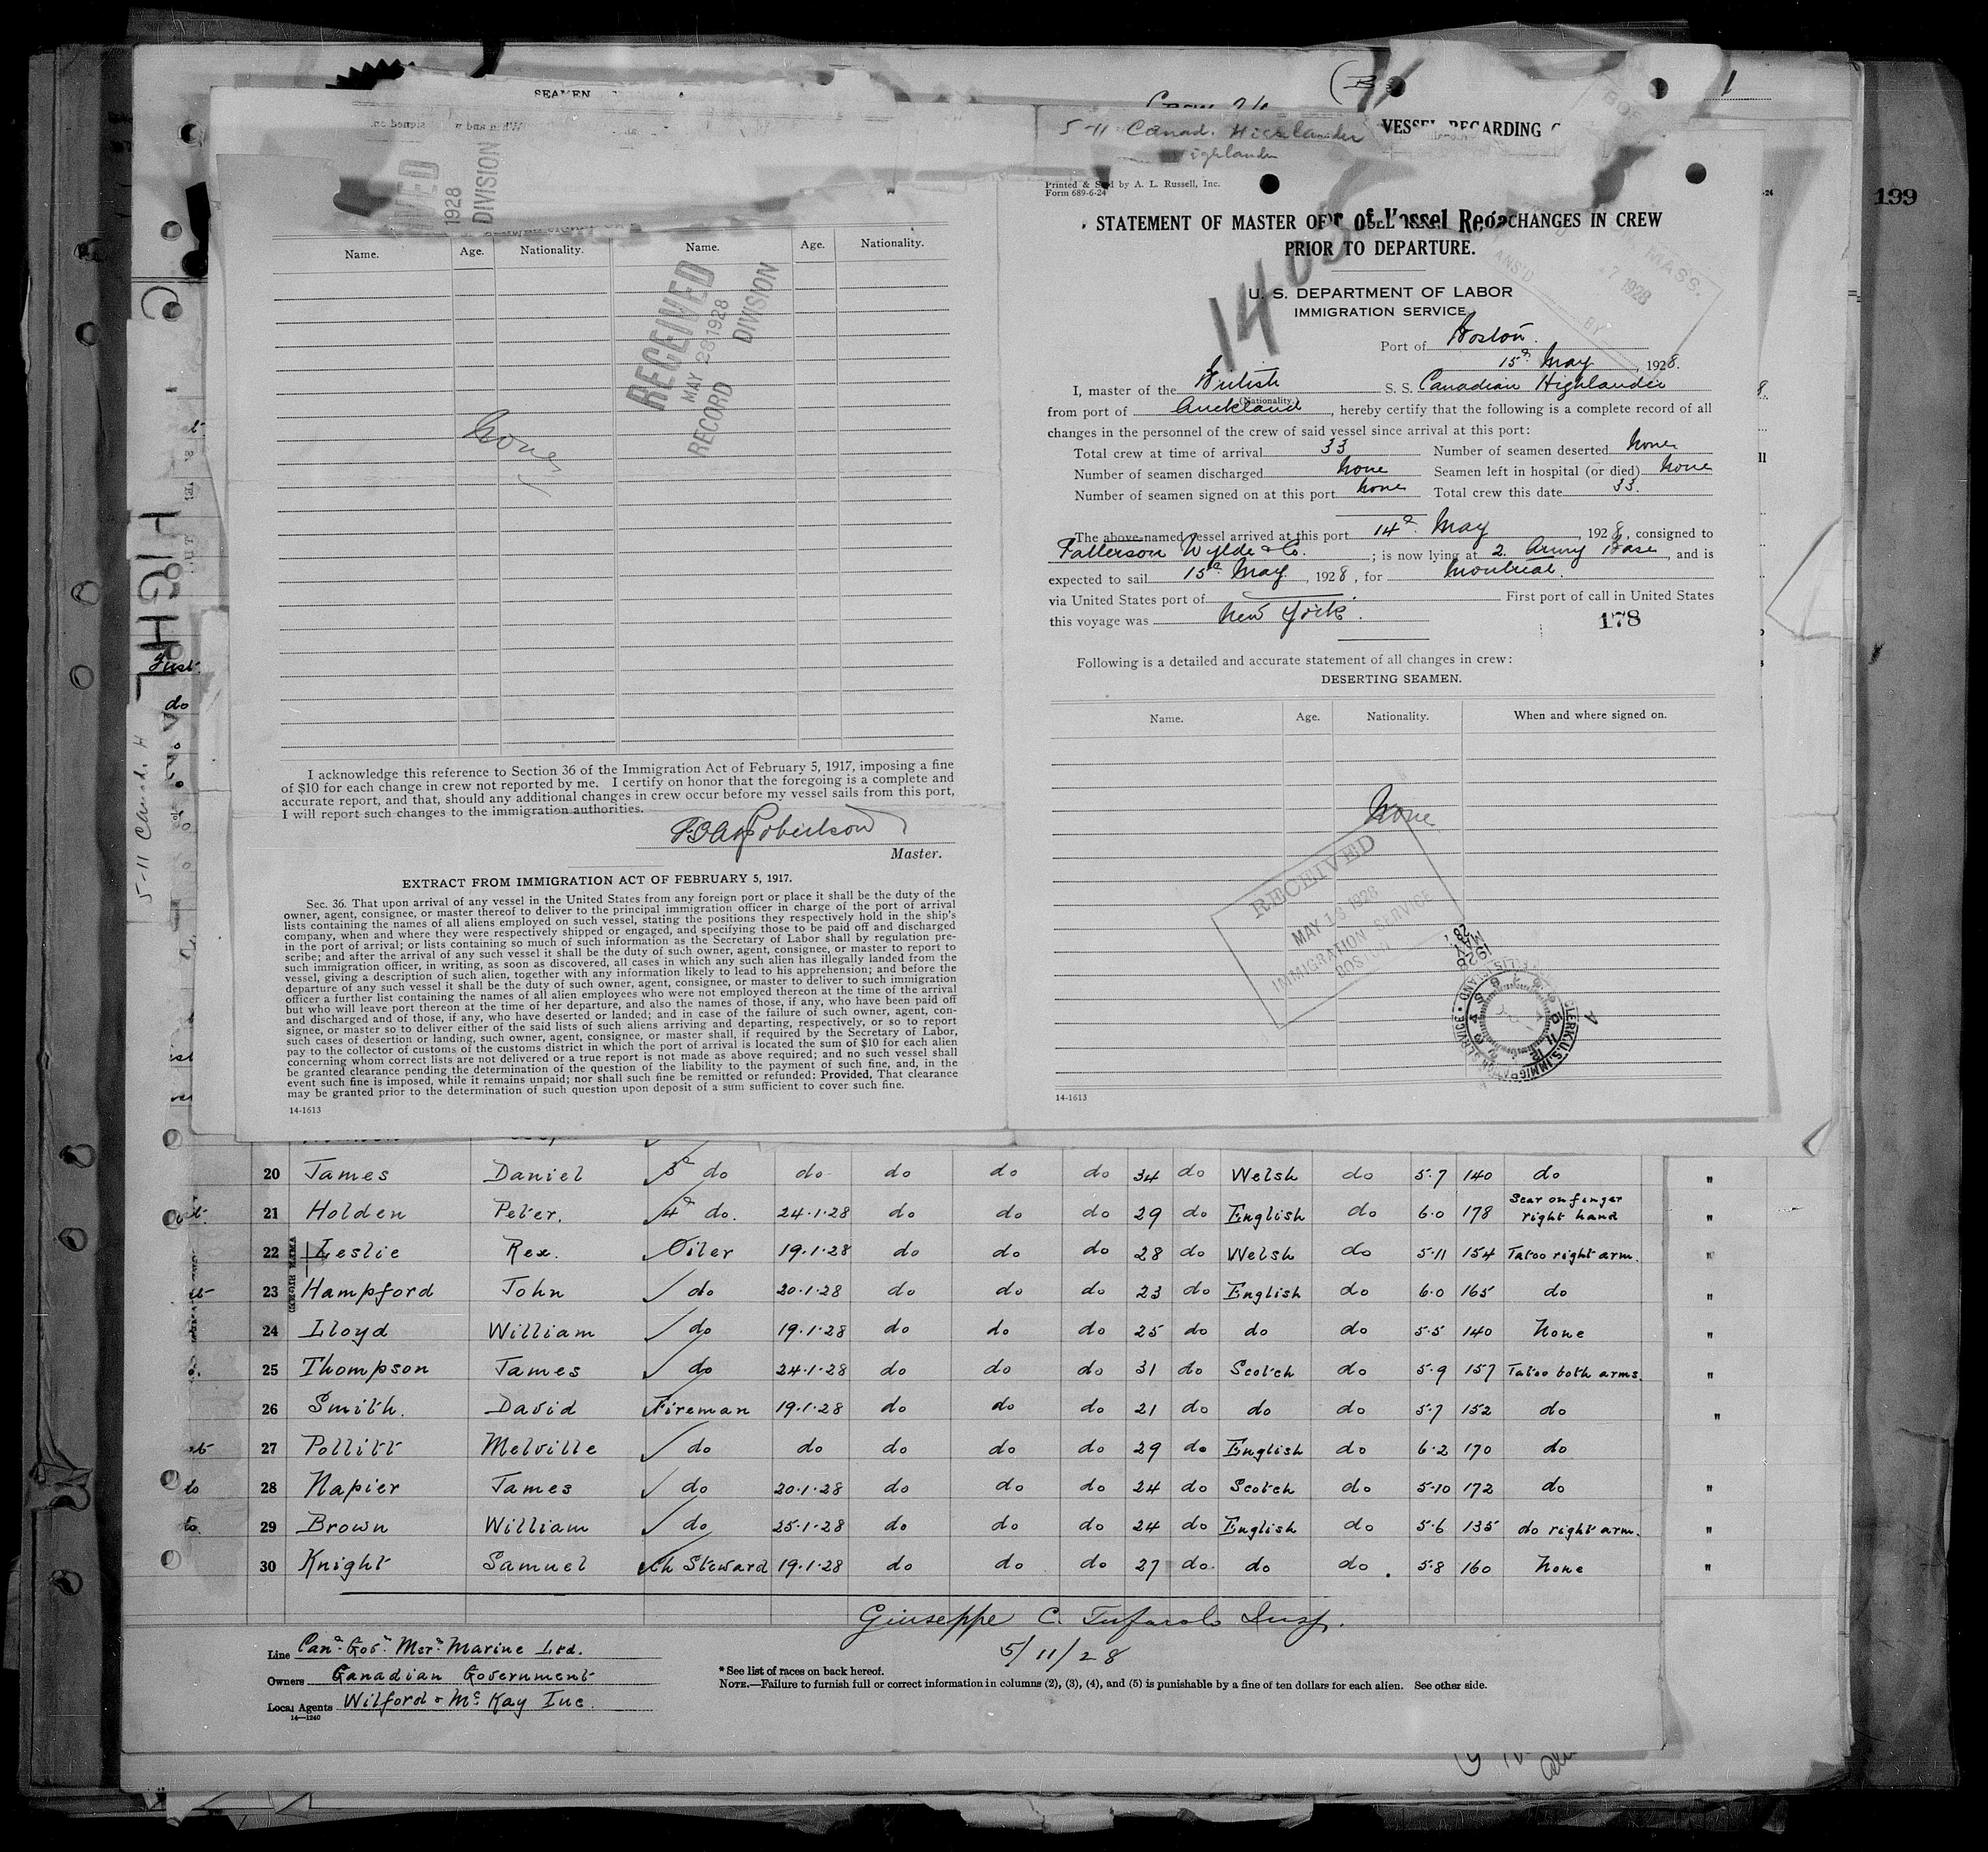 SEAMEN
5-11 Canad. Highlander
Highlander
VESSEL REGARDING
1
199
RECEIVED
MAY 28 1928
RECORD DIVISION
1928
DIVISION
Name. Age. Nationality. Name. Age. Nationality.
None
I acknowledge this reference to Section 36 of the Immigration Act of February 5, 1917, imposing a fine
of $10 for each change in crew not reported by me. I certify on honor that the foregoing is a complete and
accurate report, and that, should any additional changes in crew occur before my vessel sails from this port,
I will report such changes to the immigration authorities.
Robertson
Master.
EXTRACT FROM IMMIGRATION ACT OF FEBRUARY 5, 1917.
Sec. 36. That upon arrival of any vessel in the United States from any foreign port or place it shall be the duty of the
owner, agent, consignee, or master thereof to deliver to the principal immigration officer in charge of the port of arrival
lists containing the names of all aliens employed on such vessel, stating the positions they respectively hold in the ship's
company, when and where they were respectively shipped or engaged, and specifying those to be paid off and discharged
in the port of arrival; or lists containing so much of such information as the Secretary of Labor shall by regulation pre-
scribe; and after the arrival of any such vessel it shall be the duty of such owner, agent, consignee, or master to report to
such immigration officer, in writing, as soon as discovered, all cases in which any such alien has illegally landed from the
vessel, giving a description of such alien, together with any information likely to lead to his apprehension; and before the
departure of any such vessel it shall be the duty of such owner, agent, consignee, or master to deliver to such immigration
officer a further list containing the names of all alien employees who were not employed thereon at the time of the arrival
but who will leave port thereon at the time of her departure, and also the names of those, if any, who have been paid off
and discharged and of those, if any, who have deserted or landed; and in case of the failure of such owner, agent, con-
signee, or master so to deliver either of the said lists of such aliens arriving and departing, respectively, or so to report
such cases of desertion or landing, such owner, agent, consignee, or master shall, if required by the Secretary of Labor,
pay to the collector of customs of the customs district in which the port of arrival is located the sum of $10 for each alien
concerning whom correct lists are not delivered or a true report is not made as above required; and no such vessel shall
be granted clearance pending the determination of the question of the liability to the payment of such fine, and, in the
event such fine is imposed, while it remains unpaid; nor shall such fine be remitted or refunded: Provided, That clearance
may be granted prior to the determination of such question upon deposit of a sum sufficient to cover such fine.
14-1613
Printed & Sold by A. L. Russell, Inc.
Form 689-6-24
STATEMENT OF MASTER OF VESSEL REGARDING CHANGES IN CREW
PRIOR TO DEPARTURE.
U. S. DEPARTMENT OF LABOR
IMMIGRATION SERVICE
Port of Boston.
15th May, 1928.
I, master of the British S. S. Canadian Highlander
(Nationality.)
from port of Auckland, hereby certify that the following is a complete record of all
changes in the personnel of the crew of said vessel since arrival at this port:
Total crew at time of arrival 33 Number of seamen deserted None
Number of seamen discharged None Seamen left in hospital (or died) None
Number of seamen signed on at this port None Total crew this date 33.
The above-named vessel arrived at this port 14th May, 1928, consigned to
Patterson Wylde & Co.; is now lying at 2. Army Base, and is
expected to sail 15th May, 1928, for Montreal.
via United States port of First port of call in United States
this voyage was New York.
178
Following is a detailed and accurate statement of all changes in crew:
DESERTING SEAMEN.
Name. Age. Nationality. When and where signed on.
None
RECEIVED
MAY 16 1928
IMMIGRATION SERVICE
BOSTON
14-1613
20 James Daniel 3rd do do do do do 34 do Welsh do 5.7 140 do "
21 Holden Peter. 4th do. 24.1.28 do do do 29 do English do 6.0 178 Scar on finger right hand "
22 Leslie Rex. Oiler 19.1.28 do do do 28 do Welsh do 5.11 154 Tatoo right arm. "
23 Hampford John do 20.1.28 do do do 23 do English do 6.0 165 do "
24 Lloyd William do 19.1.28 do do do 25 do do do 5.5 140 None "
25 Thompson James do 24.1.28 do do do 31 do Scotch do 5.9 157 Tatoo both arms. "
26 Smith. David Fireman 19.1.28 do do do 21 do do do 5.7 152 do "
27 Pollitt Melville do do do do do 29 do English do 6.2 170 do
28 Napier James do 20.1.28 do do do 24 do Scotch do 5.10 172 do "
29 Brown William do 25.1.28 do do do 24 do English do 5.6 135 do right arm. "
30 Knight Samuel Ch Steward 19.1.28 do do do 27 do do do. 5.8 160 None "
Giuseppe C. Tufarolo Insp.
5/11/28
Line Cann. Govt. Mert. Marine Ltd.
Owners Canadian Government
Local Agents Wilford & McKay Inc.
14-1240
* See list of races on back hereof.
NOTE.—Failure to furnish full or correct information in columns (2), (3), (4), and (5) is punishable by a fine of ten dollars for each alien. See other side.